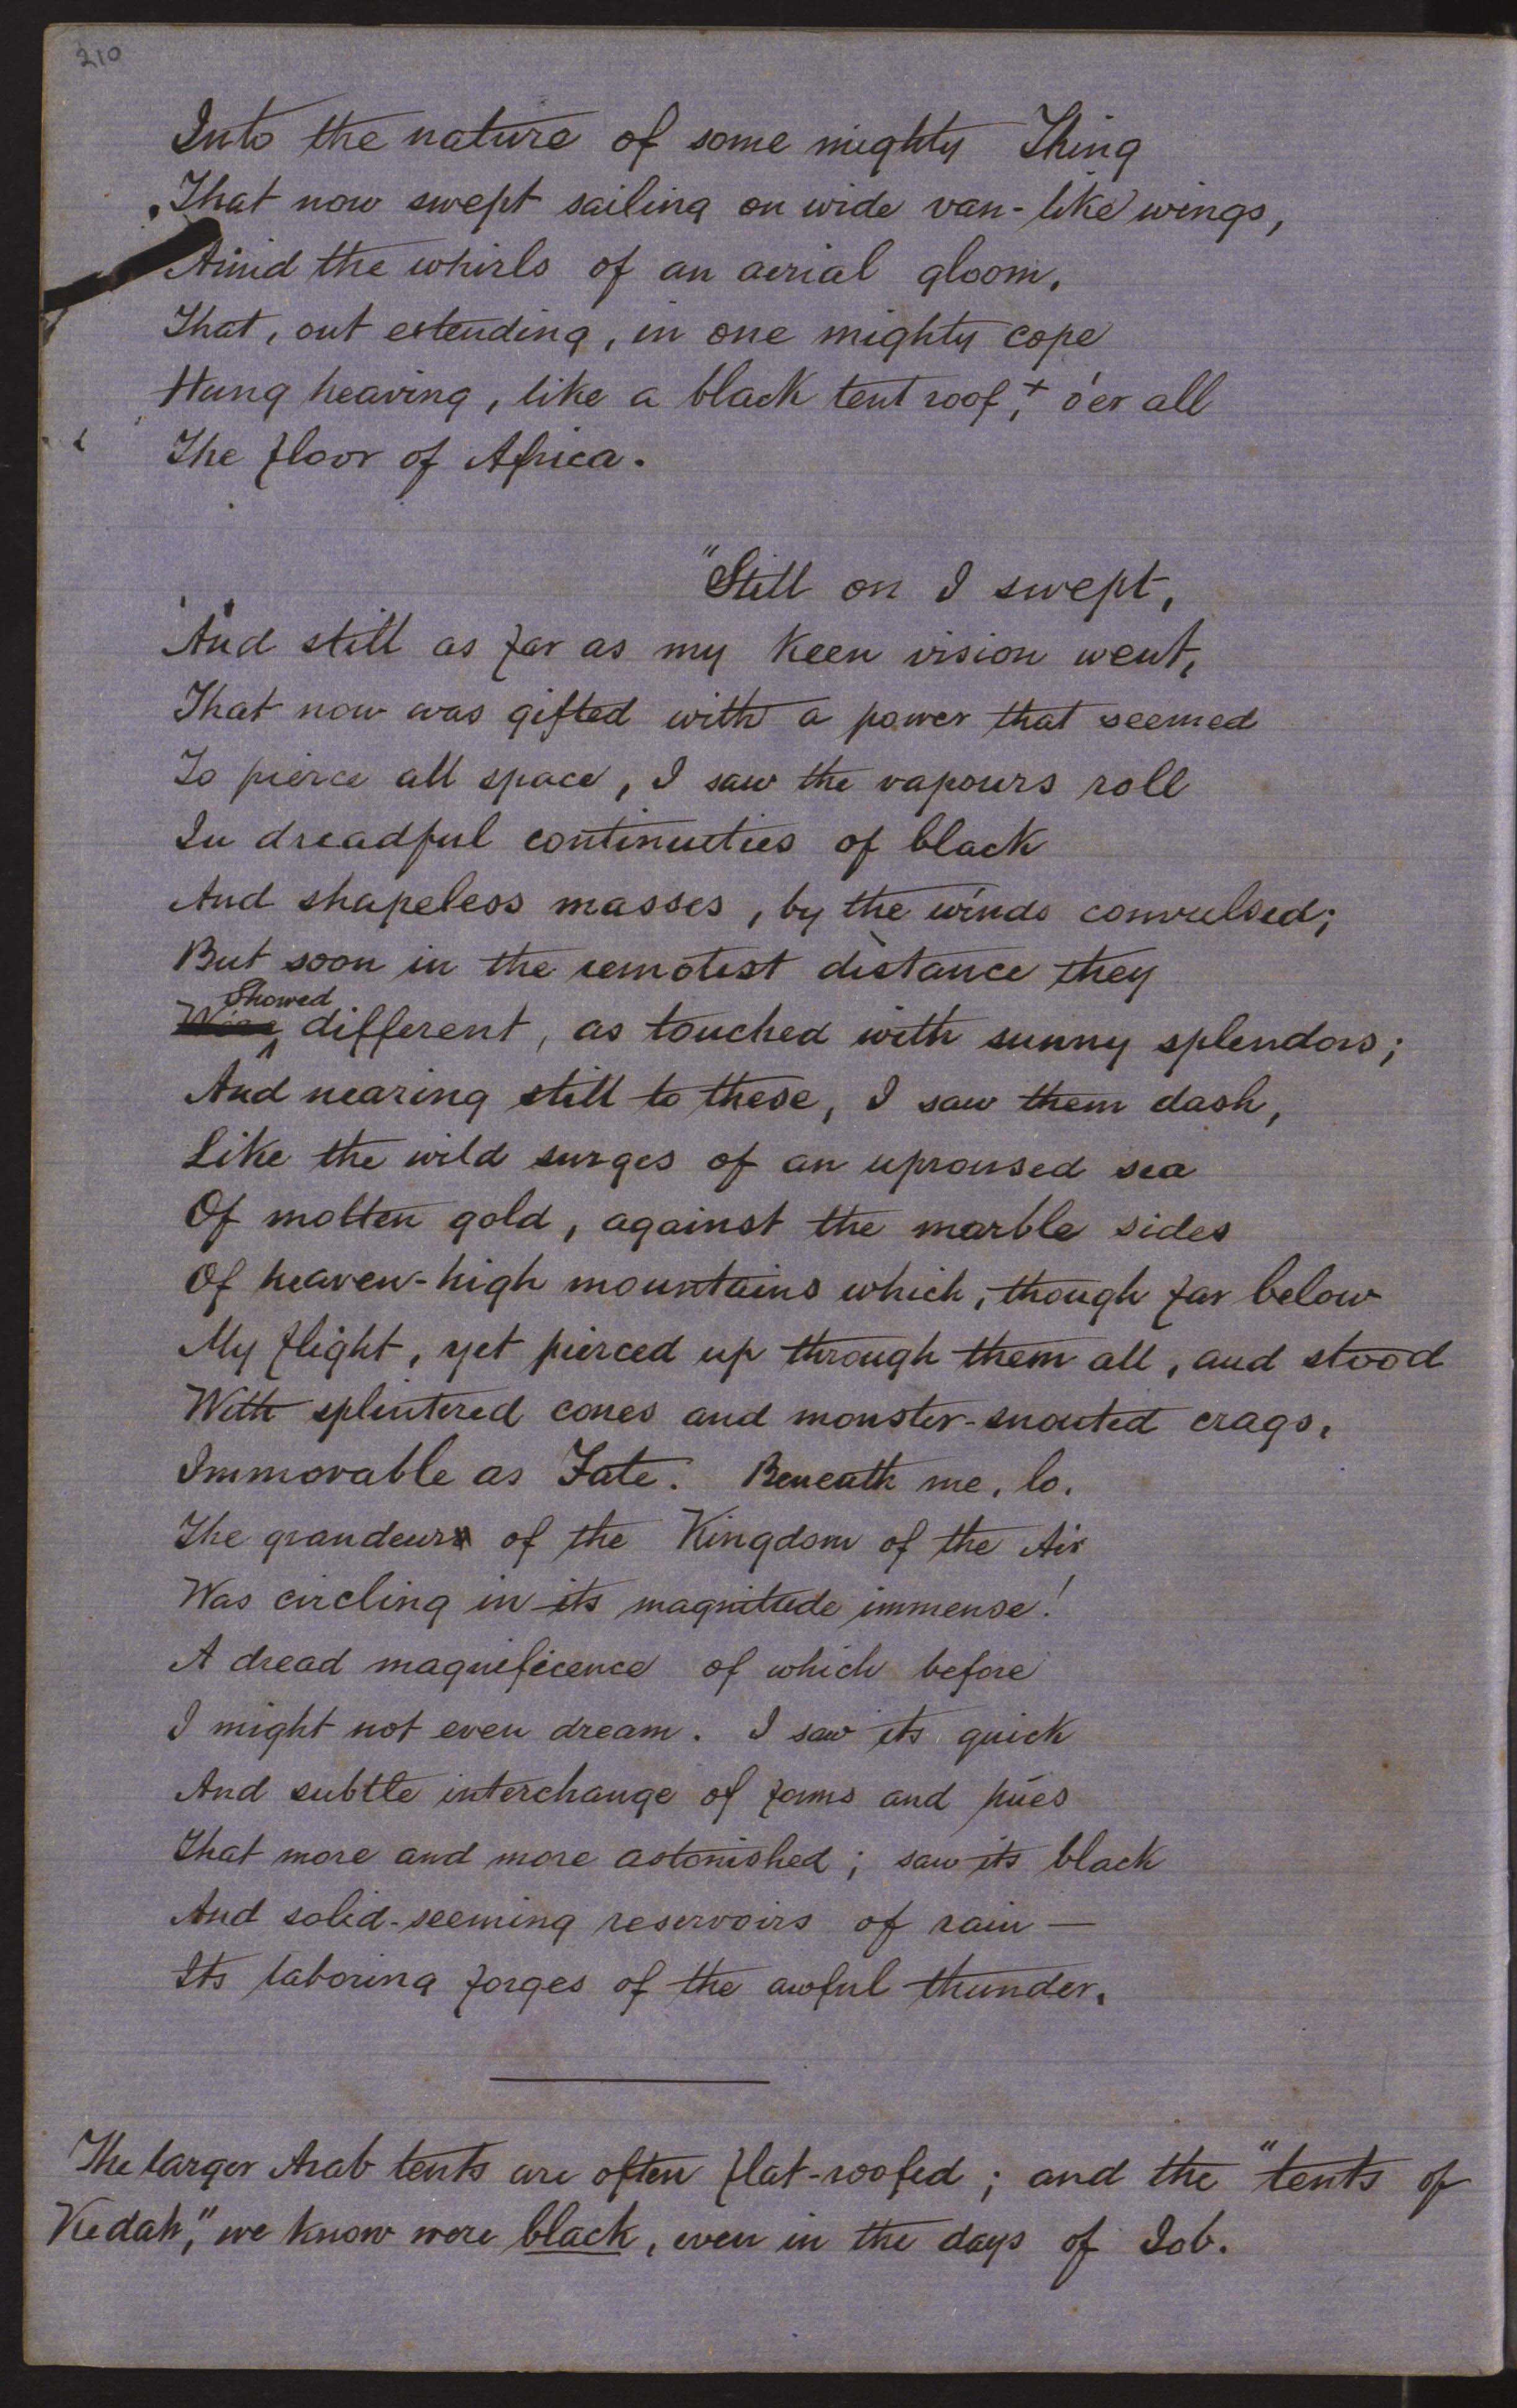 210
Into the nature of some mighty Thing
That now swept sailing on wide van-like wings,
Amid the whirls of an aerial gloom,
That, out extending, in one mighty cope
Hung heaving, like a black tent roof,+ o'er all
The floor of Africa.
"Still on I swept,
And still as far as my keen vision went,
That now was gifted with a power that seemed
To pierce all space, I saw the vapours roll
In dreadful continuities of black
And shapeless masses, by the winds convulsed;
But soon in the remotest distance they
Showed
Were different, as touched with sunny splendors;
And nearing still to these, I saw them dash,
Like the wild surges of an uproused sea
Of molten gold, against the marble sides
Of heaven-high mountains which, though far below
My flight, yet pierced up through them all, and stood
With splintered cones and monster-snouted crags,
Immovable as Fate. Beneath me, lo,
The grandeur of the Kingdom of the Air
Was circling in its magnitude immense!
A dread magnificence of which before
I might not even dream. I saw its quick
And subtle interchange of forms and hues
That more and more astonished; saw its black
And solid-seeming reservoirs of rain —
Its laboring forges of the awful thunder.
The larger Arab tents are often flat-roofed; and the "tents of
Kedah," we know were black, even in the days of Job.